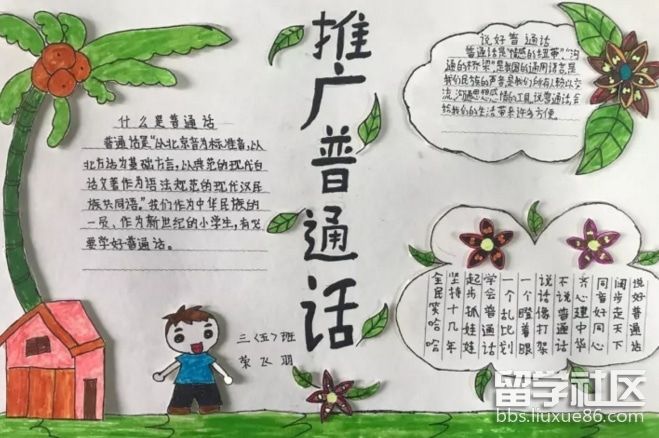 推广普通话
什么是普通话
普通话是"以北京音为标准音,以
北方话为基础方言,以典范的现代白
话文著作为语法规范的现代汉民
族共同语。"我们作为中华民族的
一员、作为新世纪的小学生,有必
要学好普通话。
说好普通话
普通话是"情感的纽带""沟
通的桥梁",是我国的通用语言,是
我们民族的声音,是我们所有人
交流,沟通思想感情的工具,说普通话,会
给我们的生活带来许多方便。
说好普通话
阔步走天下
同音好同心
齐心建中华
不说普通话
说话像打架
一个瞪着眼
一个乱比划
学会普通话
起步抓娃娃
坚持十几年
全民笑哈哈
三〈五〉班
荣飞羽
留学社区
bbs.liuxue86.com